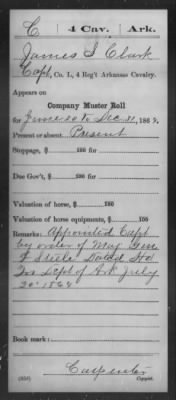 C | 4 Cav. | Ark.
James S. Clark
Capt, Co. I, 4 Reg't Arkansas Cavalry.
Appears on
Company Muster Roll
for June 30 & Dec 31, 186
Present or absent Present
Stoppage, $ 100 for
Due Gov't, $ 100 for
Valuation of horse, $ 100
Valuation of horse equipments, $ 100
Remarks: Appointed Capt
by order of Maj Gen
F Steele Dated Hd
Qrs Dept of Ark July
20" 1864
Book mark:
Carpenter
(858) Copyist.